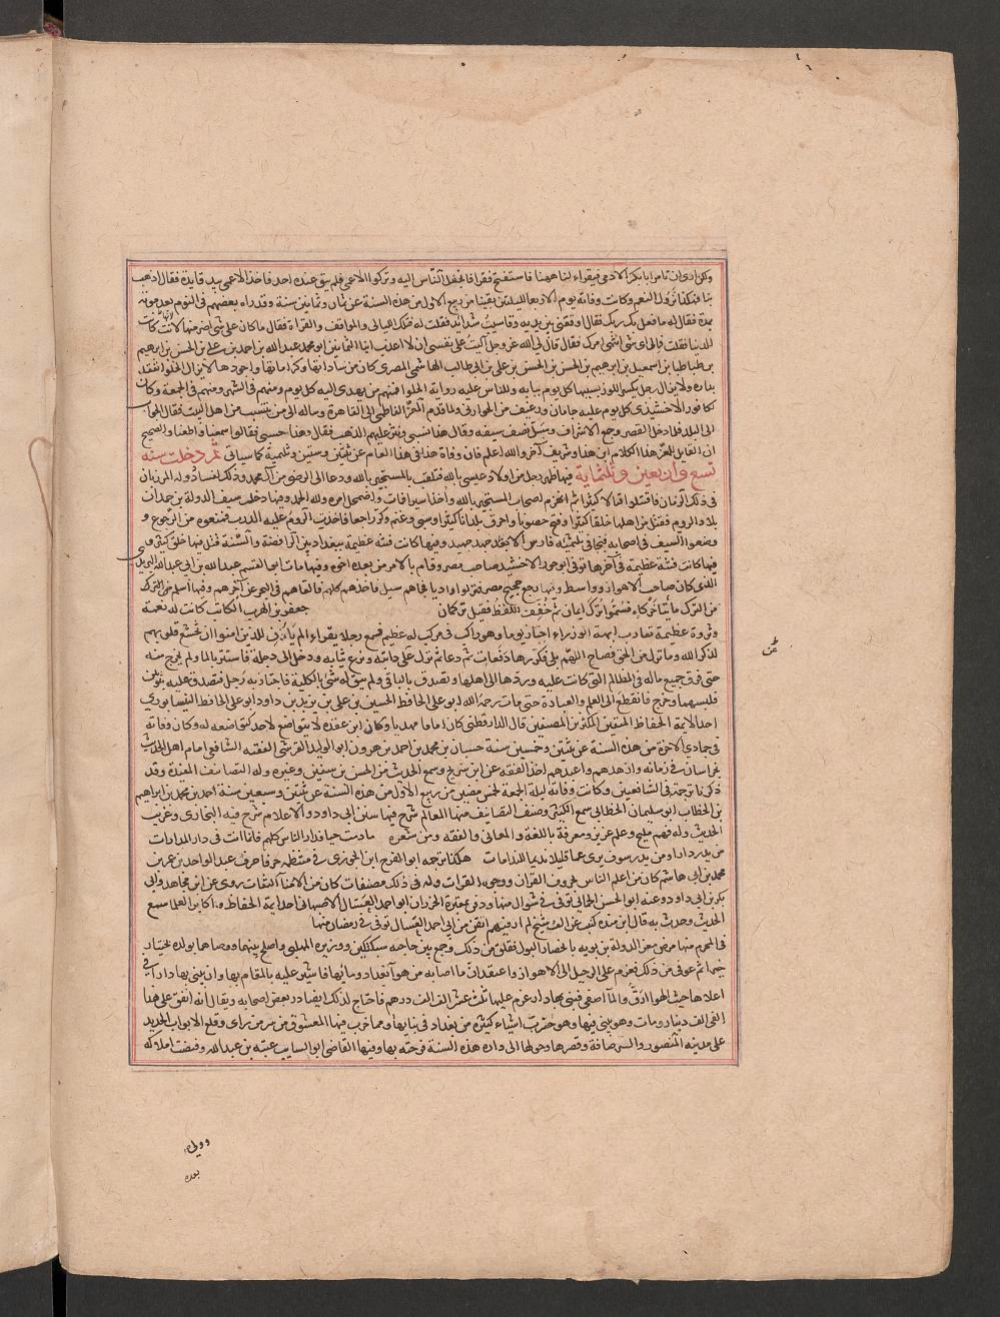 ولكن ادى ان نامر ابا بكر الادمى فيقراء لنا ههنا فاستفتح فقرا فانجفل الناس اليه وتركوا الاعمى فلم يبق عنده احد فاخذ الاعمى بيد قايده فقال اذهب
بنا فهكذا تزول النعم وكانت وفاته يوم الاربعا لليلتين بقيتا من ربيع الاول من هذه السنة عن ثمان وثمانين سنة وقد راه بعضهم فى النوم بعد موته
بمدة فقال له ما فعل بك ربك فقال اوقفنى بين يديه وقاسيت شدائد فقلت له فتلك الليالى والمواقف والقراة فقال ما كان على شى اضر منها لانها كانت
للدنيا فقلت فالى اى شى انتهى امرك فقال قال لى الله عز وجل آليت على نفسى ان لا اعذب ابنا الثمانين ابو محمد عبد الله بن احمد بن على بن الحسن بن ابرهيم
بن طباطبا بن اسمعيل بن ابرهيم بن الحسن بن الحسن بن على بن ابى طالب الهاشمى المصرى كان من ساداتها وكرامائها واجوادها لايزال الحلوا تتخذ
بداره ولايزال رجل يكسر اللوز بسببها كل يوم ببابه وللناس عليه رواتبه الحلوا فمنهم من يهدى اليه كل يوم ومنهم فى الشهر ومنهم فى الجمعة وكان
لكافور الاخشيدى كل يوم عليه جامان ورغيف من الحوارى ولما قدم المعز الفاطمى الى القاهرة وساله الى من ينتسب من اهل البيت فقال الجواب
الى البلد فلما دخل القصر وجمع الاشراف وسل نصف سيفه وقال هذا نسبى ونثر عليهم الذهب فقال وهذا حسبى فقالوا سمعنا واطعنا والصحيح
ان القايل للمعز هذا الكلام ابن هذا او شريف آخر والله اعلم فان وفاة هذا فى هذا العام عن ثنتين وستين وثلثمية كما سياتى ثم دخلت سنه
تسع واربعين وثلثماية فيها ظهر رجل من اولاد عيسى بالله فتلقب بالمستجير بالله ودعا الى الرضى من آل محمد وذلك لفساد دوله المرزبان
فى ذلك الزمان فاقتتلوا قتالا كثيرا ثم انهزم اصحاب المستجير بالله واخذ اسيرا فمات واضمحل امره ولله الحمد وفيها دخل سيف الدولة بن حمدان
بلاد الروم فقتل من اهلها خلقا كثيرا وفتح حصونا واحرق بلدانا كثيرة وسبى وغنم وكر راجعا فاخذت الروم عليه الدرب فمنعوه من الرجوع و
وضعوا السيف فى اصحابه فنجا فى ثلثمئة فارس الا بعد جهد جهيد وفيها كانت فتنة عظيمة ببغداد بين الرافضة والسنة قتل فيها خلق كثير وفى
فيها كانت فتنة عظيمة فى آخرها توفى ابوجور الاخشيد صاحب مصر وقام بالامر من بعده اخوه وفيها مات ابو القسم عبد الله بن ابى عبد الله البريدى
الذى كان صاحب الاهواز وواسط وفيها رجع حجيج مصر فنزلوا واديا فجاهم سيل فاخذهم كلهم فالقاهم فى البحر عن آخرهم وفيها اسلم من الترك
من الترك مائتا خركاء فسموا ترك ايمان ثم خفف اللفظ فقيل تركمان جعفر بن الحرب الكاتب كانت له نعمة
وثروة عظيمة تقارب ابهة الوزراء اجتاز يوما وهو راكب فى مركب له عظيم فسمع رجلا يقراء الم يان للذين امنوا ان تخشع قلوبهم
لذكر الله وما نزل من الحق فصاح اللهم بلى فكررها دفعات ثم دعا ثم نزل على دابته ونزع ثيابه ودخل الى دجلة فاستتر بالما ولم يخرج منه
حتى فرق جميع ماله فى المظالم التى كانت عليه وردها الى اهلها وتصدق بالباقى ولم يبق له شى بالكلية فاجتاز به رجل فتصدق عليه بثوبين
فلبسهما وخرج فانقطع الى العلم والعبادة حتى مات رحمه الله ابو على الحافظ الحسين بن على بن يزيد بن داود ابو على الحافظ النيسابورى
احد الائمة الحفاظ المتقنين المكثرين المصنفين قال الدارقطنى كان اماما مهذبا وكان ابن عقده لا يتواضع لاحد كتواضعه له وكان وفاته
فى جمادى الاخرة من هذه السنة عن ثنتين وخمسين سنة حسان بن محمد بن احمد بن هرون ابو الوليد القرشى الفقيه الشافعى امام اهل الحديث
بخراسان فى زمانه وازهدهم واعبدهم اخذ الفقه عن ابن سريج وسمع الحديث من الحسن بن سفين وغيره وله التصانيف المفيدة وقد
ذكرنا ترجمته فى الشافعيين وكانت وفاته ليلة الجمعة لخمس مضين من ربيع الاول من هذه السنة عن ثنتين وسبعين سنة احمد بن محمد بن ابراهيم
بن الخطاب ابو سلمان الخطابى سمع الكثير وصنف التصانيف منها المعالم شرح فيها سنن ابى داود والاعلام شرح فيه البخارى وغريب
الحديث وله فهم مليح وعلم غزير ومعرفة باللغة والمعانى والفقه ومن شعره ما دمت حيا فدار الناس كلهم فانما انت فى دار المدارات
من يدر دارا ومن يدر سوف يرى عما قليلا نديما للندامات هكذا ترجمه ابو الفرج ابن الجوزى فى منتظمه حرفا حرف عبد الواحد بن عمر بن
محمد بن ابى هاشم كان من اعلم الناس بحروف القران ووجوه القرات وله فى ذلك مصنفات كان من الامنا الثقات روى عن ابن مجاهد وابى
بكر بن ابى داود وعنه ابو الحسن الحمامى توفى فى شوال منها ودفن بمقبرة الخيزران ابو احمد العسال الاصبهانى احد ايمة الحفاظ واكابر العلما سمع
الحديث وحدث به قال ابن منده كتبت عن الف شيخ لم ار فيهم اتقن من ابى احمد العسال توفى فى رمضان منها
فى المحرم منها مرض معز الدولة بن بويه بانحصار البول فقلق من ذلك وجمع بين حاجبه سبكتكين ووزيره المهلبى واصلح بينهما ووصاهما بولده بختيار
خيرا ثم عوفى من ذلك فعزم على الرحيل الى الاهواز واعتقد ان ما اصابه من هوآ بغداد ومائها فاشير عليه بالمقام بها وان يبنى بها دارا فى
اعلاها حيث الهوا ارق والمآ اصفى فبنى بها دارا غرم عليها ثلث عشر الف الف درهم فاحتاج لذلك ايضا در بعض اصحابه ويقال انه انفق على هذا
الفى الف دينار ومات وهو يبنى فيها وهو خرب اشياء كثيرة من بغداد فى بنايها ومما خرب فيها المعشوق من سر من راى وقلع الابواب الحديد
على مدينه المنصور والرصافة وقصرها وحولها الى داره هذه السنة فرحته بها وفيها القاضى ابو السايب عتبه بن عبد الله وقبضت املاكه
وولى
بعده